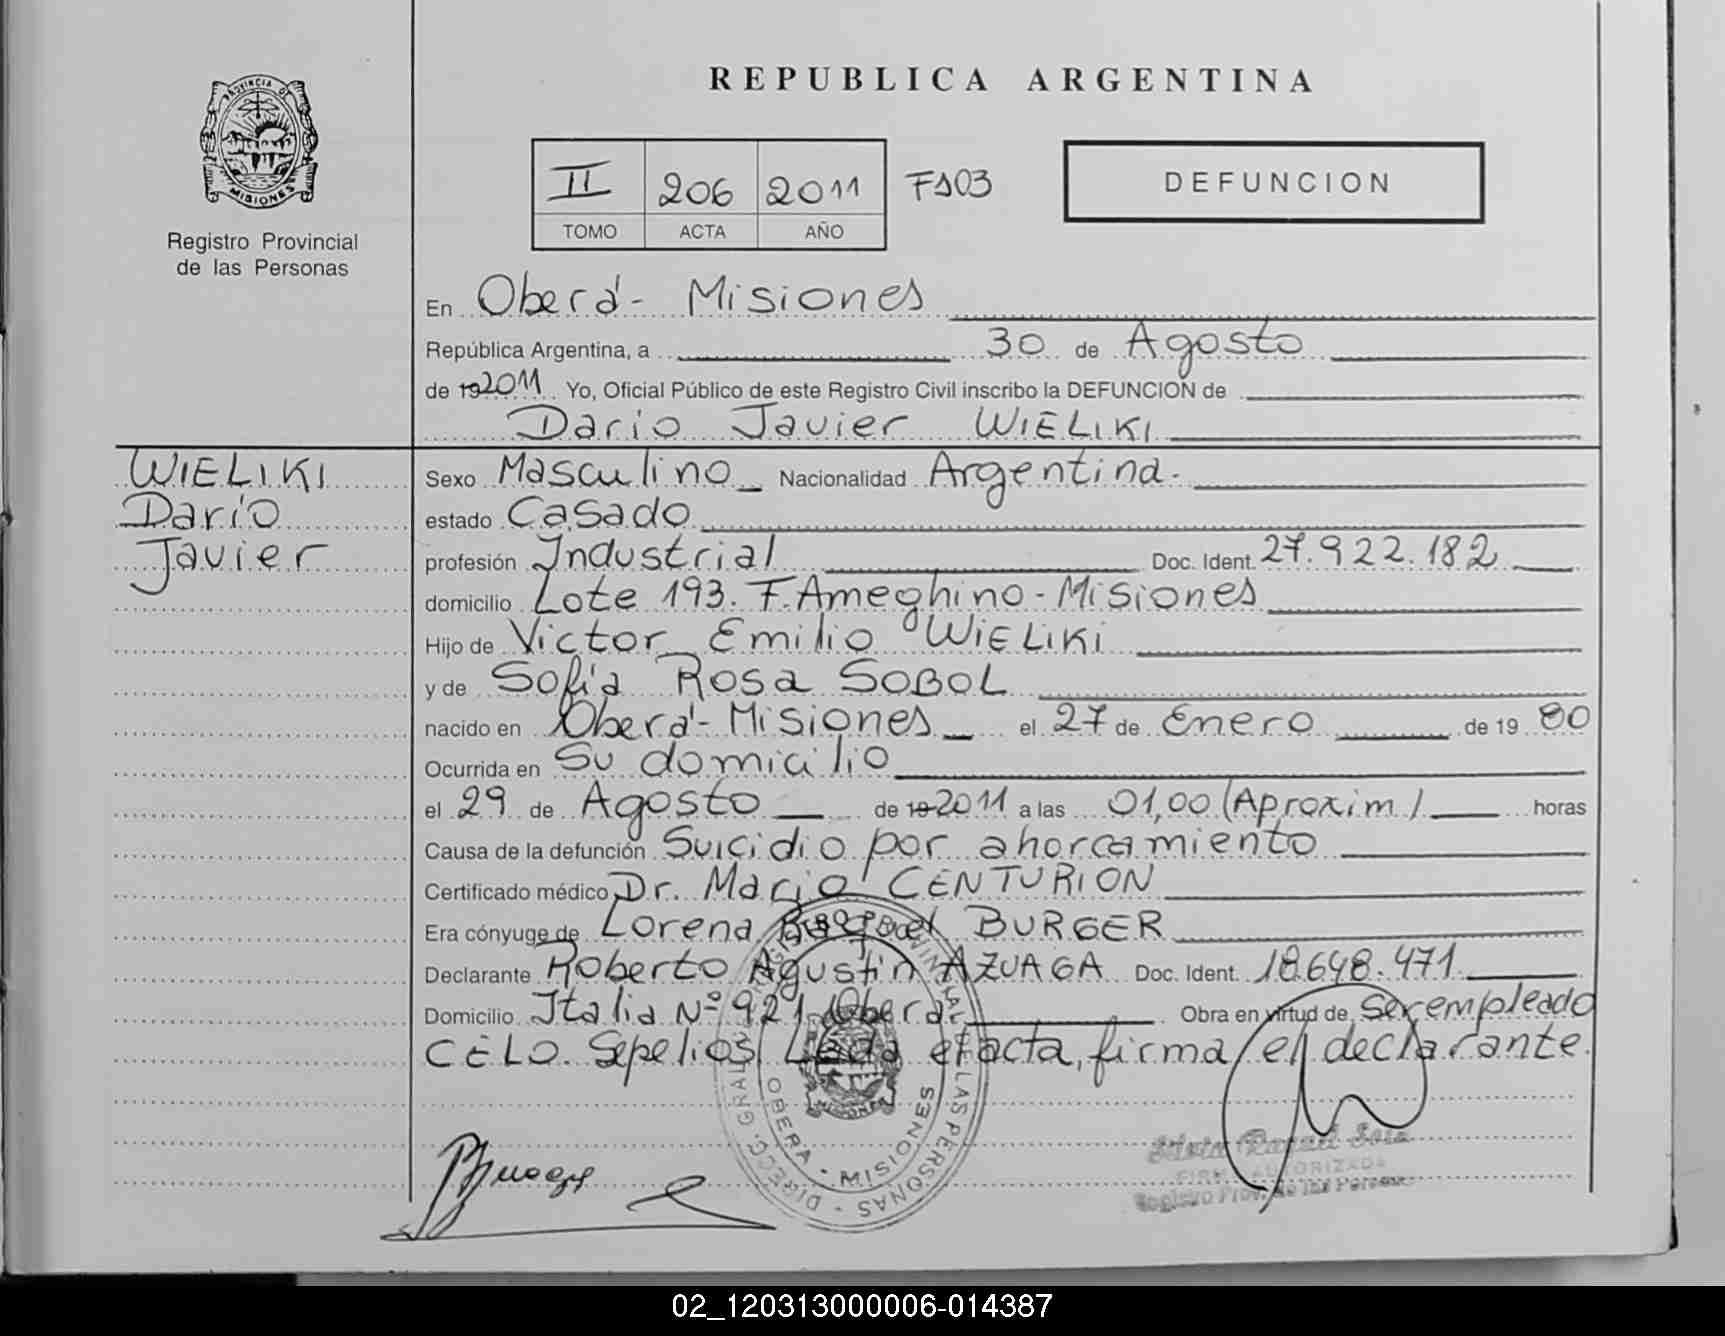 PROVINCIA DE
MISIONES
Registro Provincial
de las Personas
REPUBLICA ARGENTINA
II 206 2011 Fº103
TOMO ACTA AÑO
DEFUNCION
En Oberá - Misiones
República Argentina, a 30 de Agosto
de 19 2011 Yo, Oficial Público de este Registro Civil inscribo la DEFUNCION de
Darío Javier WIELIKI
WIELIKI
Darío
Javier
Sexo Masculino Nacionalidad Argentina.
estado Casado
profesión Industrial Doc. Ident. 27.922.182
domicilio Lote 193. F. Ameghino - Misiones
Hijo de Victor Emilio WIELIKI
y de Sofía Rosa SOBOL
nacido en Oberá - Misiones el 27 de Enero de 19 80
Ocurrida en Su domicilio
el 29 de Agosto de 19 2011 a las 01,00 (Aproxim.) horas
Causa de la defunción Suicidio por ahorcamiento
Certificado médico Dr. Mario CENTURION
Era cónyuge de Lorena Raquel BURGER
Declarante Roberto Agustín AZUAGA Doc. Ident. 18.648.471
Domicilio Italia Nº 921 Oberá Obra en virtud de ser empleado
CELO. Sepelios. Leída el acta, firma el declarante.
DIRECC. GRAL. DEL REG. PROVINCIAL DE LAS PERSONAS
OBERA - MISIONES
FIRMA AUTORIZADA
Registro Prov. de las Personas
02_120313000006-014387